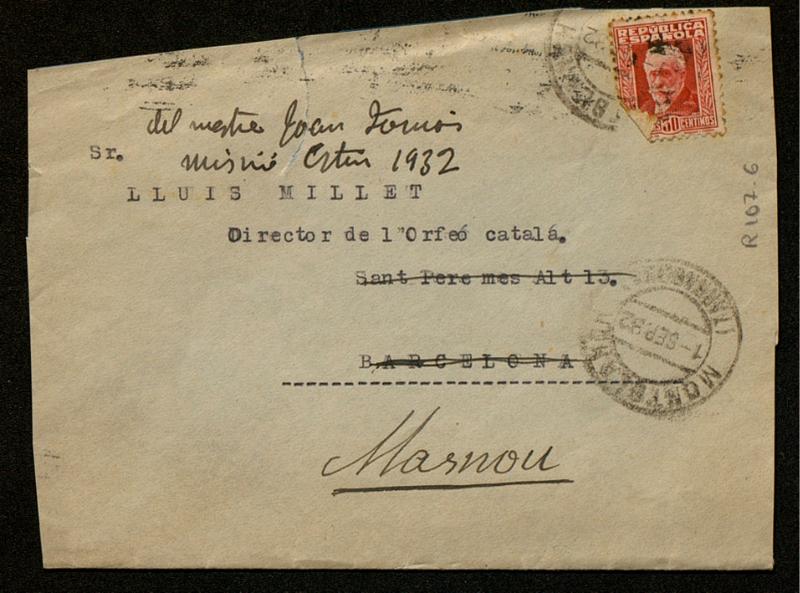 REPÚBLICA
ESPAÑOLA
30 CENTIMOS
del mestre Joan Tomàs
Sr. missió Estiu 1932
LLUIS MILLET
Director de l'Orfeó catalá.
Sant Pere mes Alt 13.
BARCELONA
Masnou
R 107-6
1-SEP.32
MONTBLANCH
(TARRAGONA)